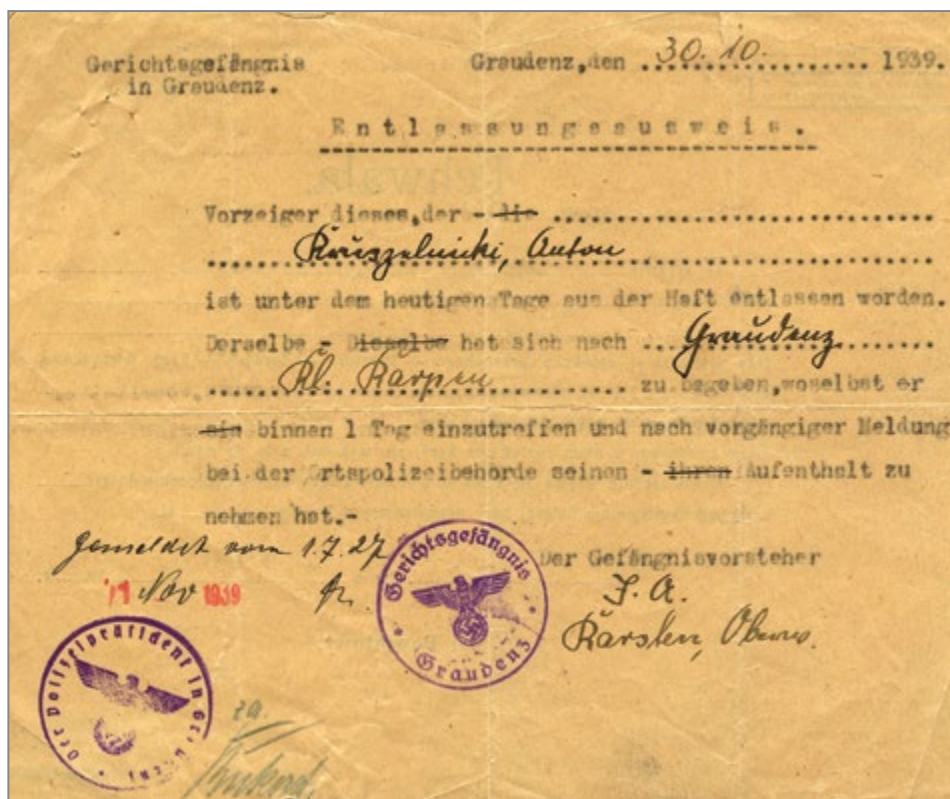 Gerichtsgefängnis
in Graudenz.
Graudenz,den 30.10. 1939.
Entlassungsausweis.
Vorzeiger dieses,der - die
Kruszelnicki, Anton
ist unter dem heutigen Tage aus der Haft entlassen worden.
Derselbe - Dieselbe hat sich nach Graudenz
Kl. Tarpen zu begeben,woselbst er
sie binnen 1 Tag einzutreffen und nach vorgängiger Meldung
bei der Ortspolizeibehörde seinen - ihren Aufenthalt zu
nehmen hat.-
gemeldet vom 1.7.27
Der Gefängnisvorsteher
Nov 1939
J.A.
Karsten,
Gerichtsgefängnis
Graudenz
Der Polizeipräsident in